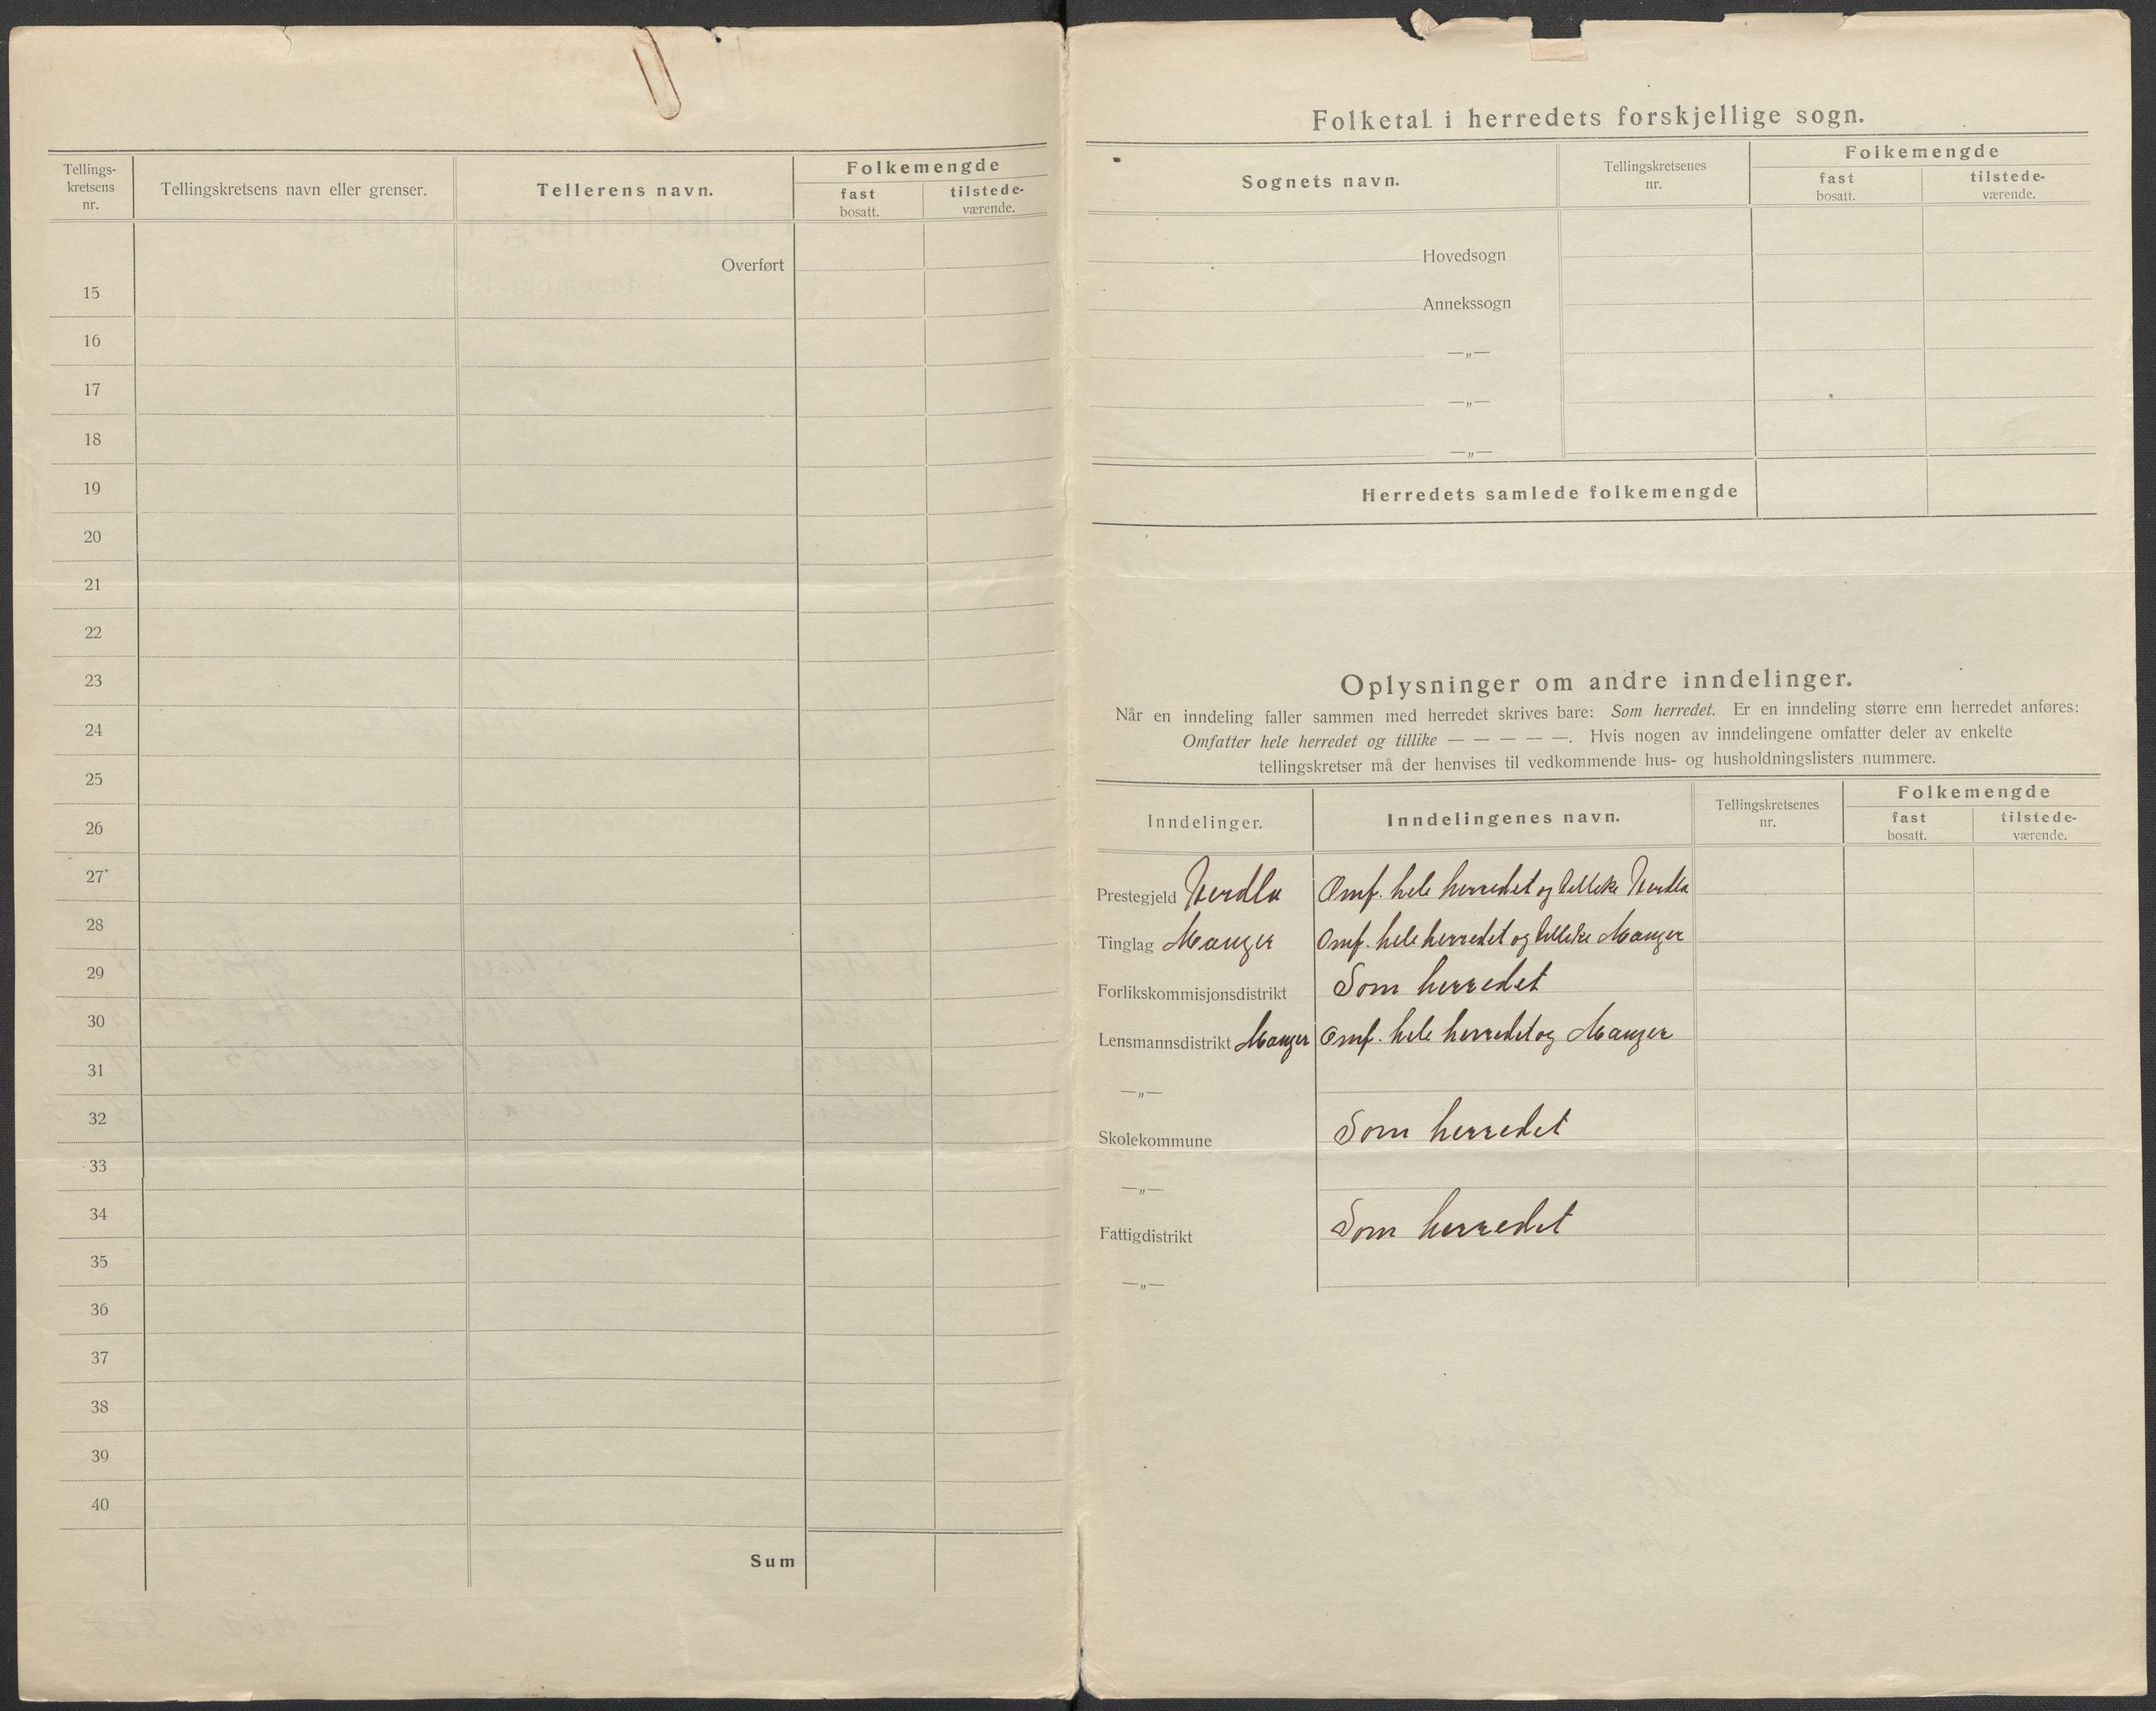 Tellings-
kretsens
nr.
Tellingskretsens navn eller grenser.
Tellerens navn.
Folkemengde
fast
bosatt.
tilstede-
værende.
Overført
15
16
17
18
19
20
21
22
23
24
25
26
27
28
29
30
31
32
33
34
35
36
37
38
39
40
Sum
Folketal i herredets forskjellige sogn.
Sognets navn.
Tellingskretsenes
nr.
Folkemengde
fast
bosatt.
tilstede-
værende.
Hovedsogn
Annekssogn
—„—
—„—
—„—
Herredets samlede folkemengde
Oplysninger om andre inndelinger.
Når en inndeling faller sammen med herredet skrives bare: Som herredet. Er en inndeling større enn herredet anføres:
Omfatter hele herredet og tillike — — — — —. Hvis nogen av inndelingene omfatter deler av enkelte
tellingskretser må der henvises til vedkommende hus- og husholdningslisters nummere.
Inndelinger.
Inndelingenes navn.
Tellingskretsenes
nr.
Folkemengde
fast
bosatt.
tilstede-
værende.
Prestegjeld Herdla Omf. hele herredet og tillike Herdla
Tinglag Manger Omf. hele herredet og tillike Manger
Forlikskommisjonsdistrikt Som herredet
Lensmannsdistrikt Manger Omf. hele herredet og Manger
—„—
Skolekommune Som herredet
—„—
Fattigdistrikt Som herredet
—„—